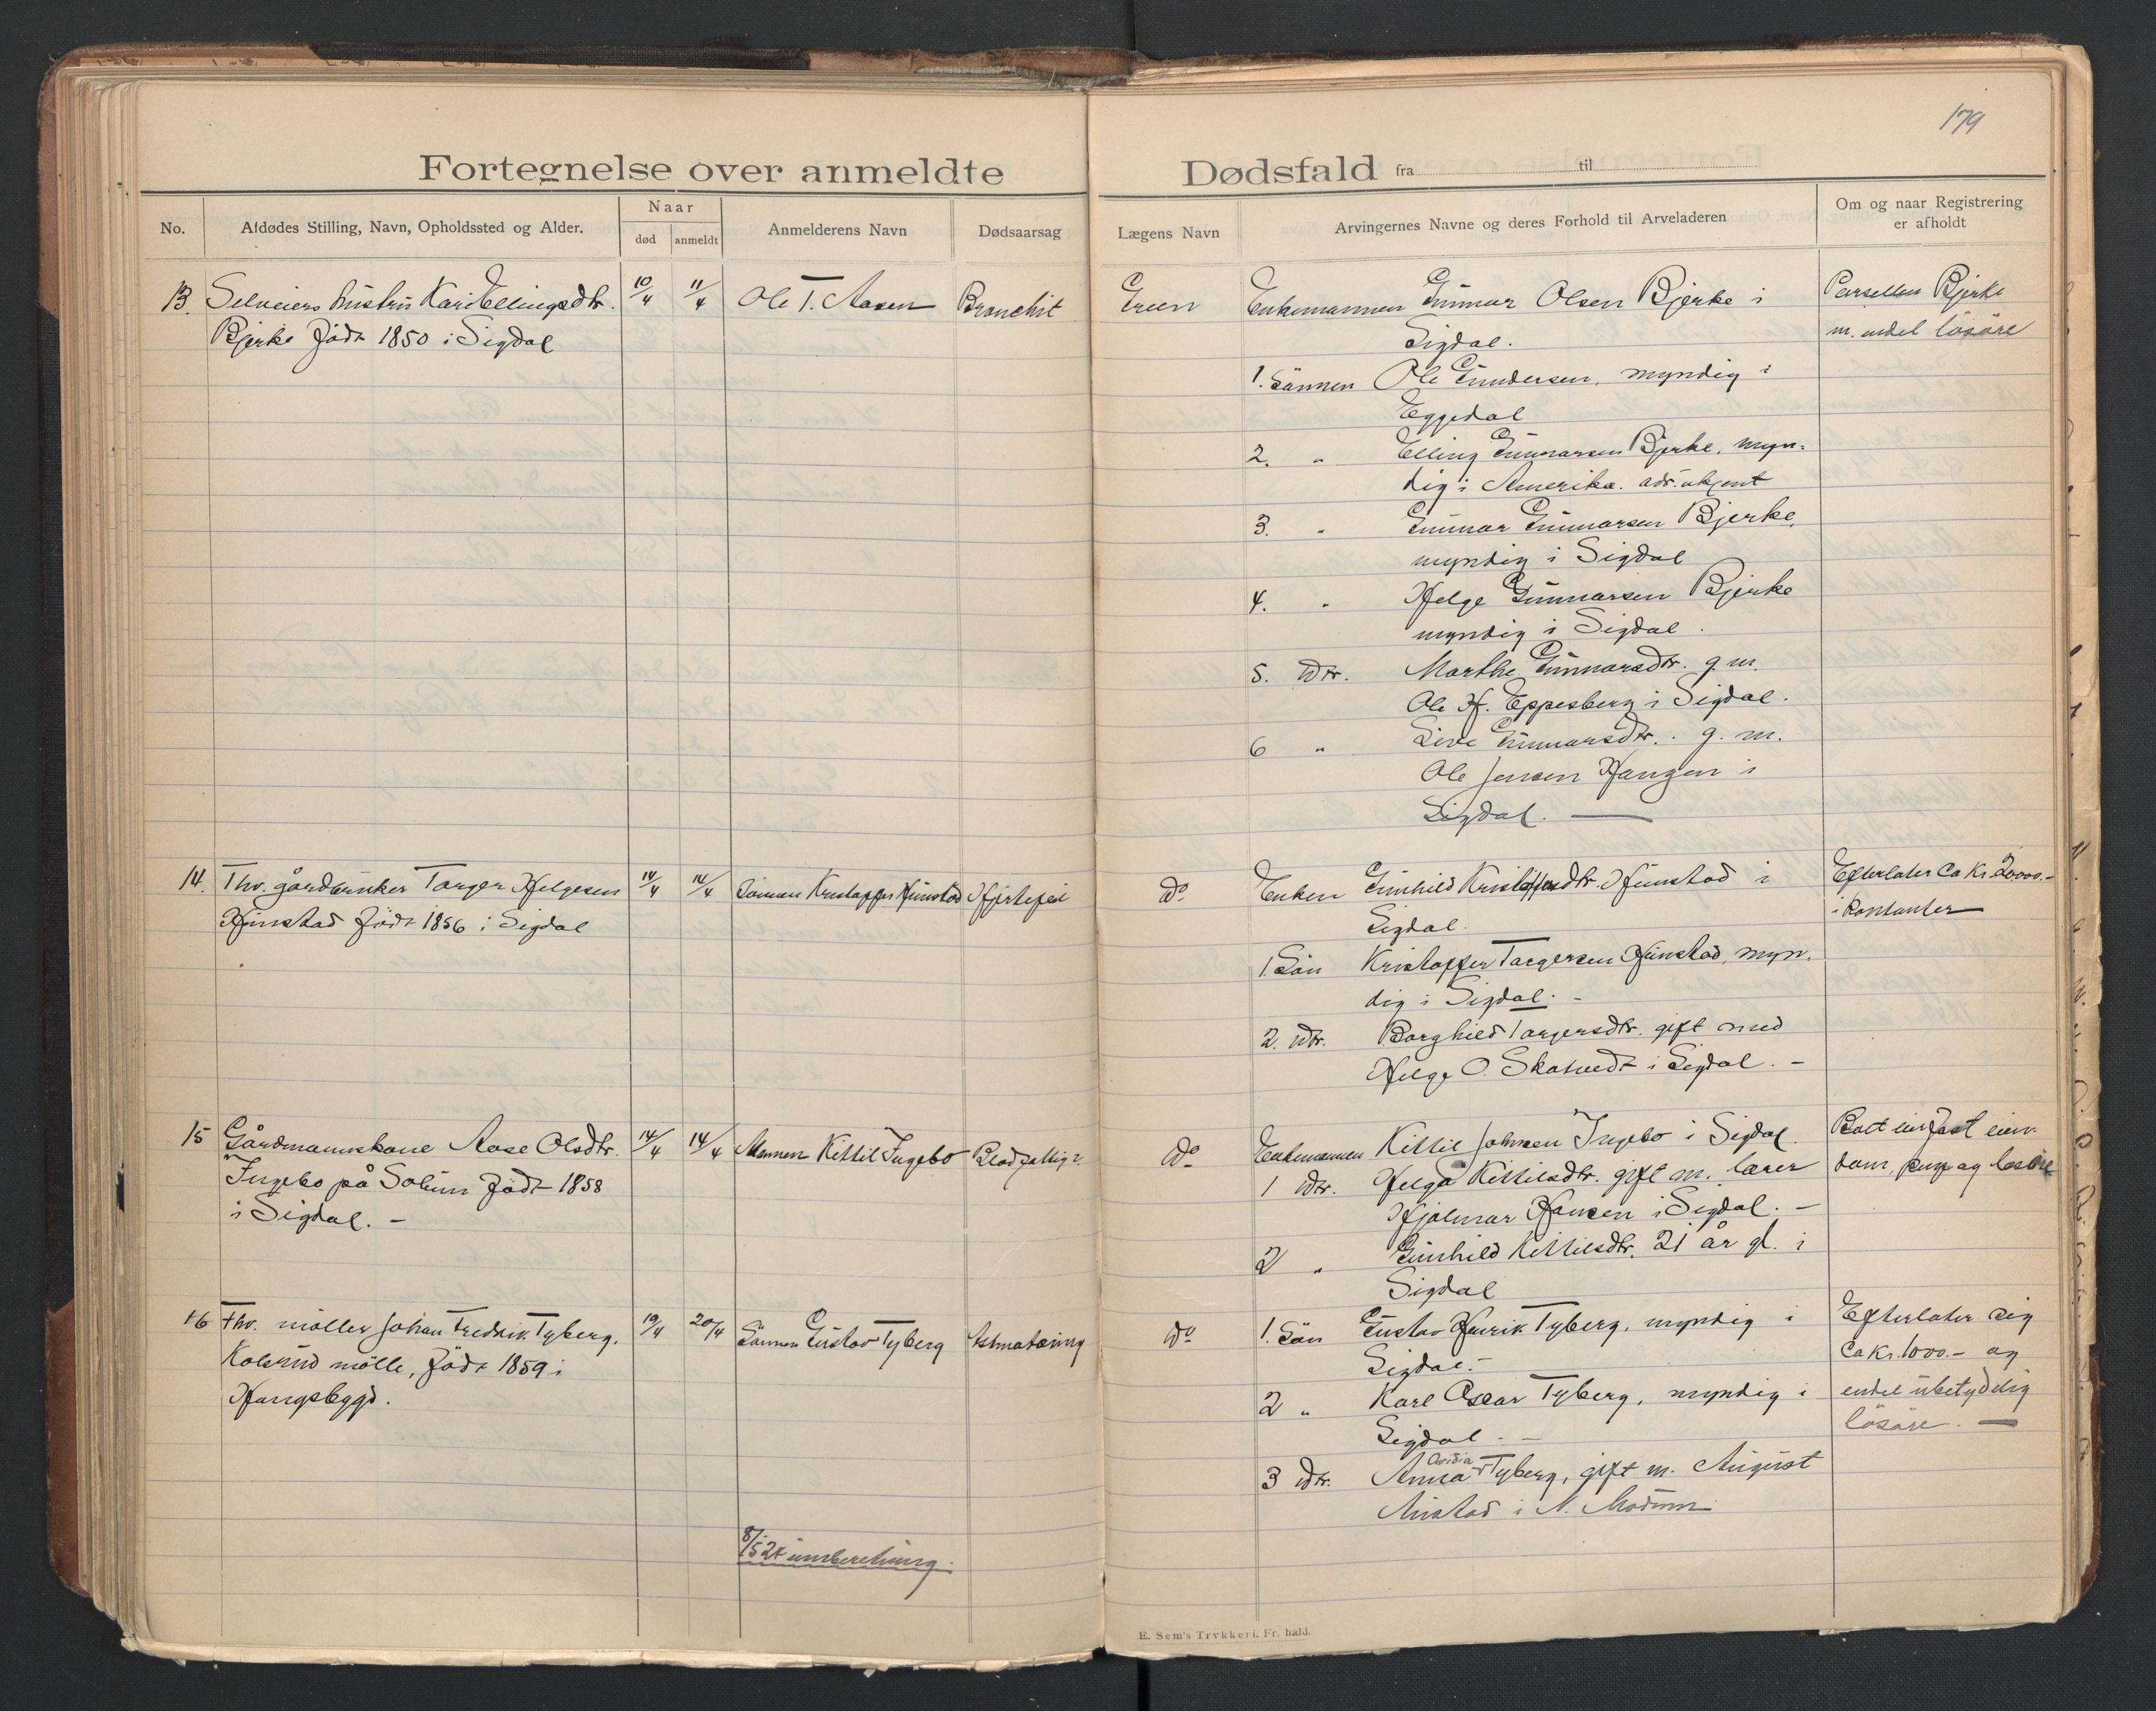 179
Fortegnelse over anmeldte Dødsfald fra til
No.
Afdødes Stilling, Navn, Opholdssted og Alder.
Naar
død
anmeldt
Anmelderens Navn
Dødsaarsag
Lægens Navn
Arvingernes Navne og deres Forhold til Arveladeren
Om og naar Registrering
er afholdt
13. Selveiers hustru Kari Ellingsdtr. 10/4 11/4 Ole T. Aasen Bronchit
Bjerke född 1850 i Sigdal
Green Enkemannen Gunnar Olsen Bjerke i
Sigdal.
1. Sönnen Ole Gundersen, myndig i
Eggedal
2. " Elling Gunnarsen Bjerke, myn-
dig i Amerika. adr. ukjent
3. " Gunnar Gunnarsen Bjerke,
myndig i Sigdal
4. " Helge Gunnarsen Bjerke
myndig i Sigdal.
5. Dtr. Marthe Gunnarsdtr. g. m.
Ole H. Eppesberg i Sigdal.
6 " Live Gunnarsdtr. g. m.
Ole Jensen Haugen i
Sigdal. —
Parsellen Bjerke
m. endel lösöre
14. Fhv. gårdbruker Torger Helgesen 14/4 14/4 Sönnen Kristoffer Hunstad Hjertefeil
Hunstad född 1856 i Sigdal
do Enken Gunhild Kristoffersdtr. Hunstad i
Sigdal.
1. Sön Kristoffer Torgersen Hunstad, myn-
dig i Sigdal. -
2. Dtr. Borghild Torgersdtr. gift med
Helge O. Skatvedt i Sigdal. -
Efterlater ca Kr. 20000.-
i kontanter
15 Gårdmannskone Aase Olsdtr. 14/4 14/4 Mannen Kittil Ingebo
Ingebo på Solum född 1858
i Sigdal. -
do Enkemannen Kittil Johnsen Ingebo i Sigdal.
1 Dtr. Helga Kittilsdtr. gift m. lærer
Hjalmar Hansen i Sigdal. -
2 " Gunhild Kittilsdtr. 21 år gl. i
Sigdal
Boet eier fast eien-
dom, og lösöre
16 Fhv. möller Johan Fredrik Tyberg, 19/4 20/4 Sönnen Gustav Tyberg
Kolsrud mölle, född 1859 i
Haugsbygd.
do 1. Sön Gustav Henrik Tyberg, myndig i
Sigdal. -
2 " Karl Oscar Tyberg, myndig i
Sigdal. -
3 Dtr. Anna Ovidia Tyberg, gift m. August
i N. Modum
Efterlater sig
ca Kr. 1000.- og
endel ubetydelig
lösöre. —
8/5 24 innberetning.
E. Sem's Trykkeri, Fr. hald.